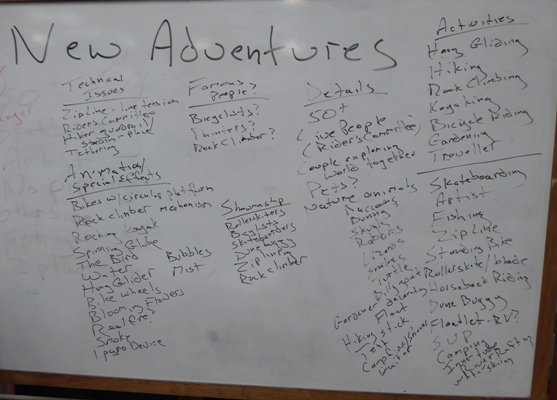 New Adventures
Technical
Issues
Zipline - line tension
Riders Committee
Hiker quadrail/
staying in place
Tethering
Animation/
Special Effects
Bikes w/circular platform
Rock climber mechanism
Rocking Kayak
Spinning Globe
The Bird
Water
Bubbles
Hang Glider
Mist
Bike wheels
Blooming Flowers
Real fire?
Smoke
Device
Famous
People?
Bicyclists?
Painters?
Rock Climber?
Showmanship
Rollerskiters
Bicyclists
Skateboarders
Dune buggy
Ziplining
Rock climber
Details
50+
Live People
(Riders Committee)
Couple exploring
world together
Pets?
Nature animals
Raccoons
Bunny
Skunk
Rabbits
Lizards
Snakes
Turtle
Billy goat
Gardener decorating
Float
Hiking stick
Tent
Campfire/smores
guitar
Activities
Hang Gliding
Hiking
Rock Climbing
Kayaking
Bicycle Riding
Gardening
Traveller
Skateboarding
Artist
Fishing
Zipline
Standing Bike
Rollerskate/blade
Horseback Riding
Dune Buggy
Floatlet - RV?
SUP
Camping
Inner tube
skiing